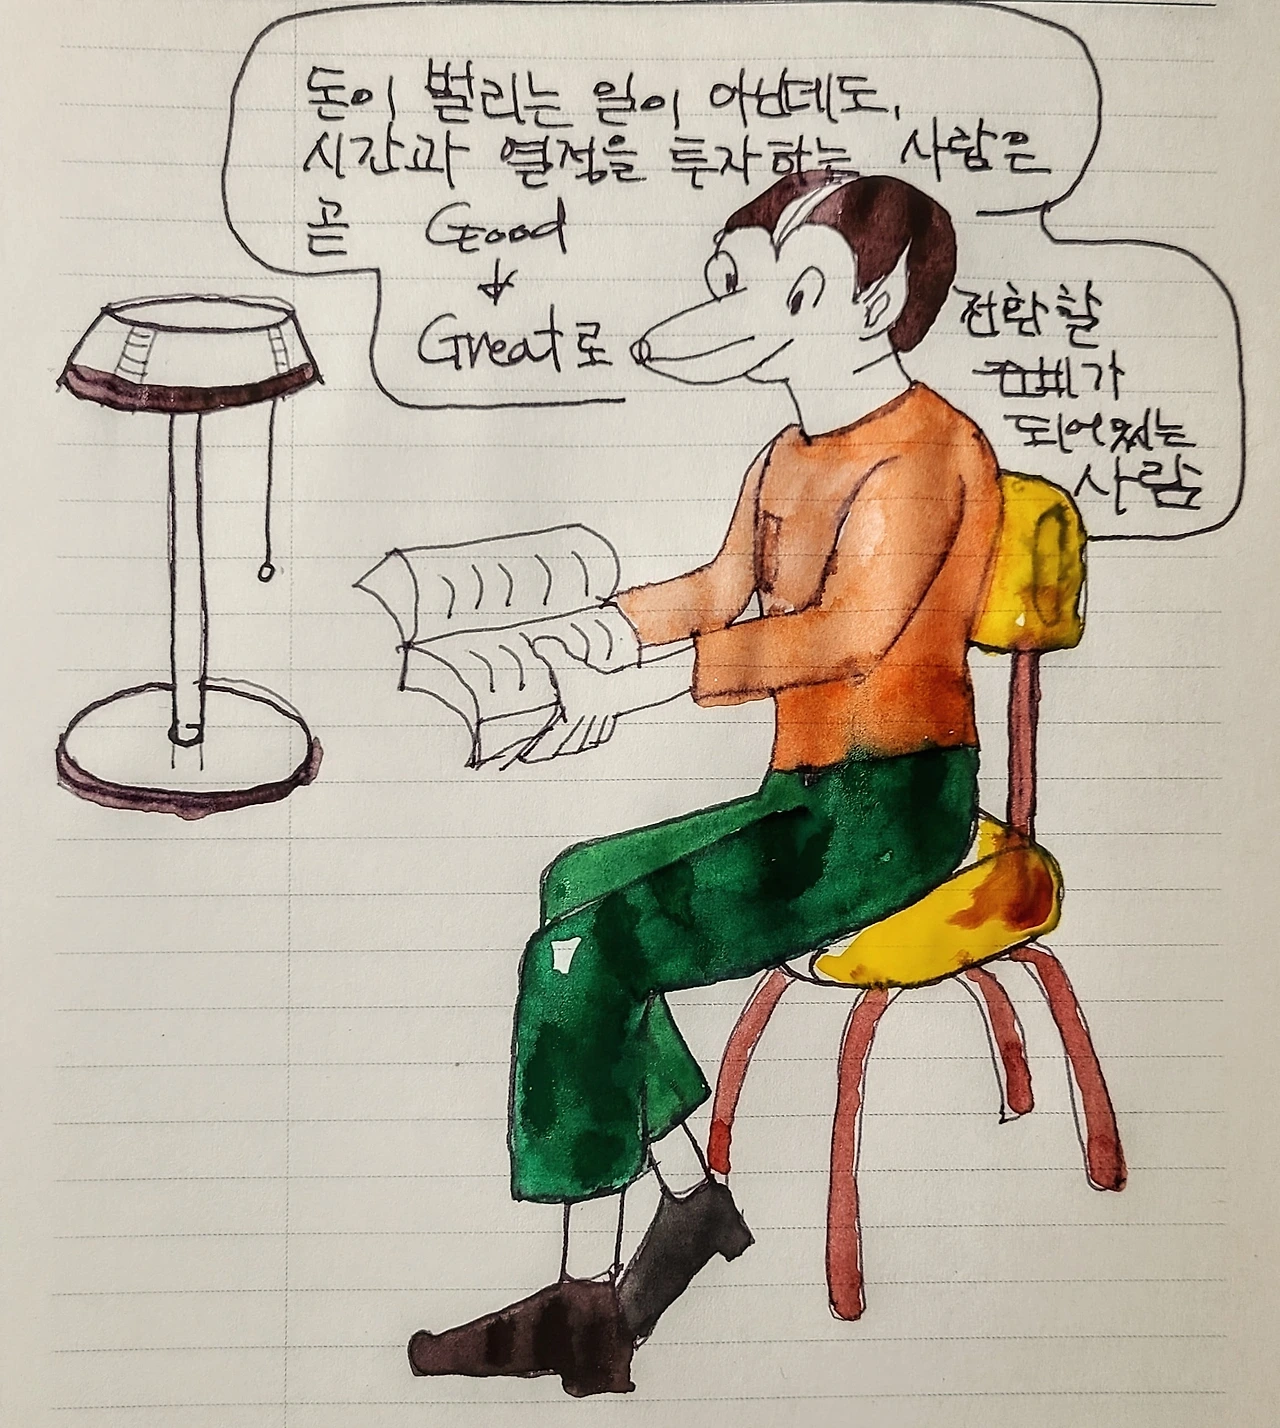 돈이 벌리는 일이 아닌데도,
시간과 열정을 투자하는 사람은
곧 Good
↓
Great로
전환할
준비가
되어있는
사람